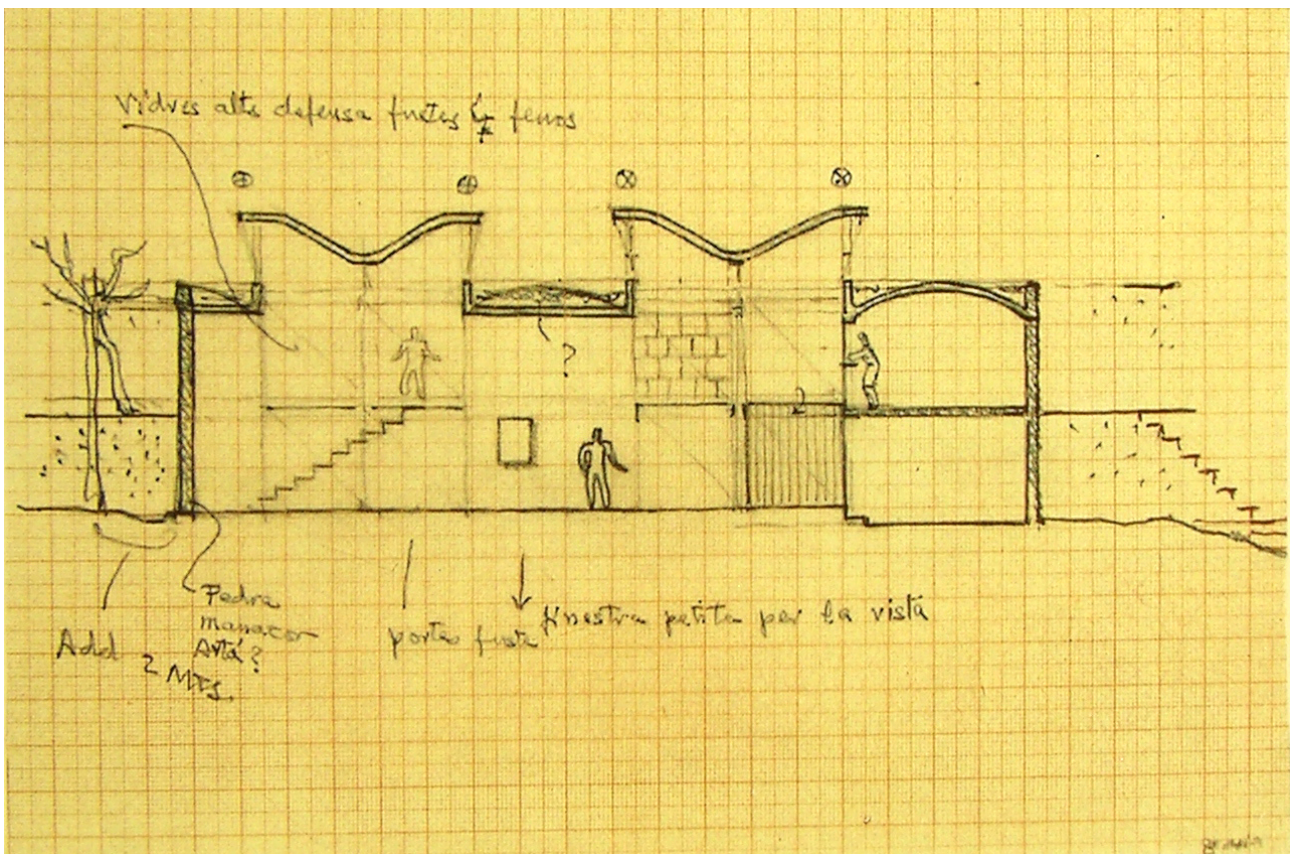 Vidres alts defensa fustes o ferros
?
Pedra
manacor
Artà?
Add 2 MTS.
portes fusta
finestra petita per la vista